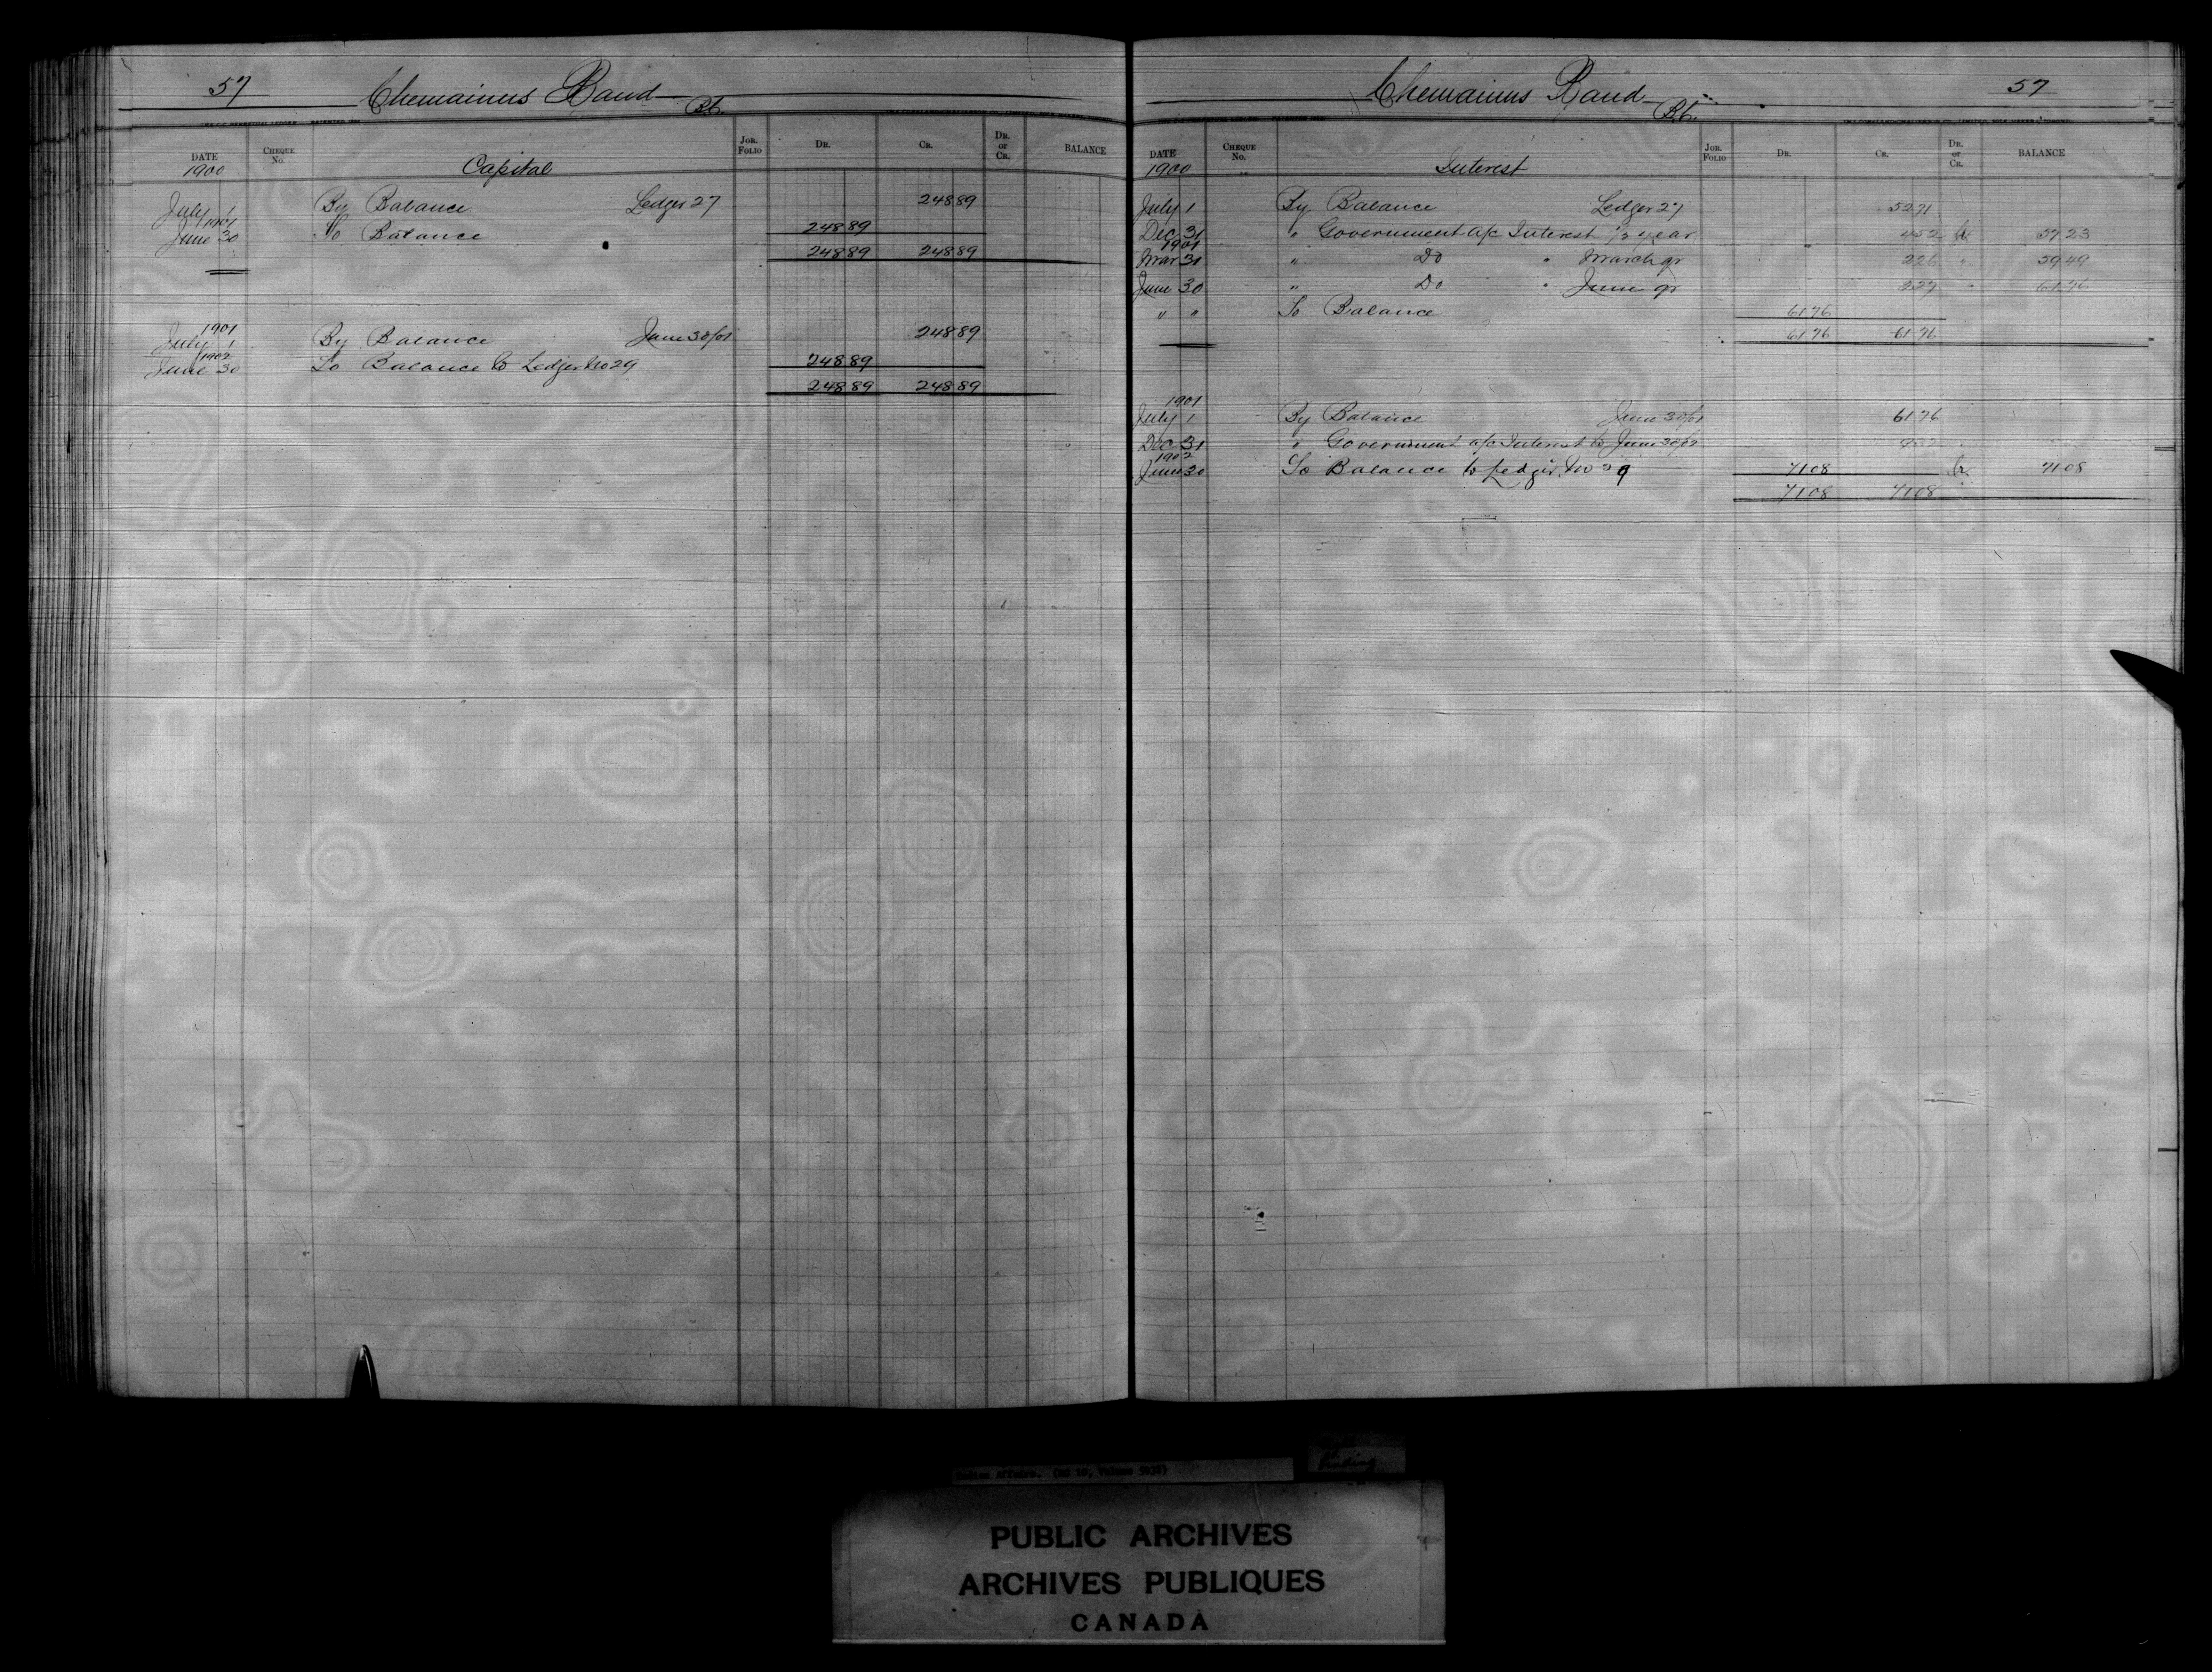 57 Chemainus Band B.C.
DATE Cheque No. Jor. Folio Dr. Cr. Dr. or Cr. BALANCE
1900 Capital
July 1 By Balance Ledger 27 248 89
1901
June 30 To Balance 248 89
248 89 248 89
1901
July 1 By Balance June 30/01 248 89
1902
June 30 To Balance to Ledger No 29 248 89
248 89 248 89
Chemainus Band B.C. 57
DATE Cheque No. Jor. Folio Dr. Cr. Dr. or Cr. BALANCE
1900 Interest
July 1 By Balance Ledger 27 52 71
Dec 31 " Government a/c Interest 1/2 year 4 52 Cr 57 23
1901
Mar 31 " Do " March qr 2 26 " 59 49
June 30 " Do " June qr 2 27 " 61 76
" " To Balance 61 76
61 76 61 76
1901
July 1 By Balance June 30/01 61 76
Dec 31 " Government a/c Interest to June 30/02 9 32
1902
June 30 To Balance to Ledger No 29 71 08 Cr. 71 08
71 08 71 08
Indian Affairs. (RG 10, Volume 5938)
binding
PUBLIC ARCHIVES
ARCHIVES PUBLIQUES
CANADA